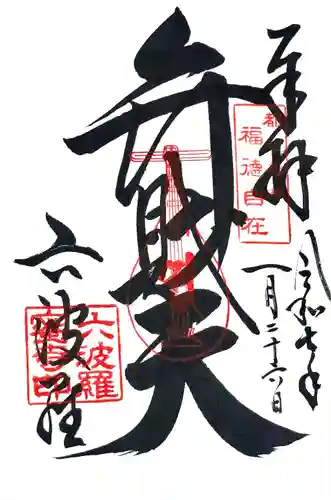 奉拝
令和七年
一月二十六日
都
福徳自在
弁財天
六波羅
六波羅